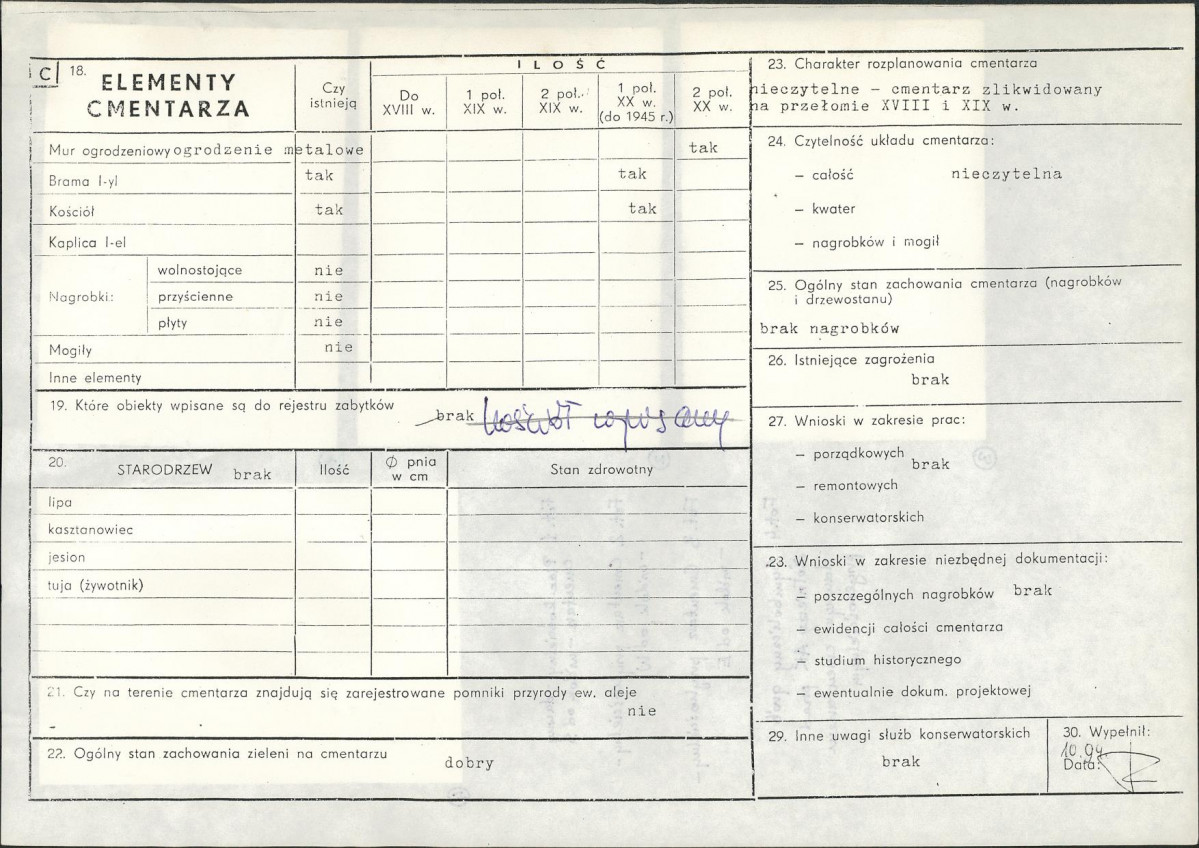 C 18. ELEMENTY CMENTARZA
Czy istnieją
ILOŚĆ
Do XVIII w.
1 poł. XIX w.
2 poł. XIX w.
1 poł. XX w. (do 1945 r.)
2 poł. XX w.
Mur ogrodzeniowy ogrodzenie metalowe tak
Brama I-yl tak tak
Kościół tak tak
Kaplica I-el
Nagrobki:
wolnostojące nie
przyścienne nie
płyty nie
Mogiły nie
Inne elementy
19. Które obiekty wpisane są do rejestru zabytków
brak kościół wpisany
20. STARODRZEW brak Ilość Ø pnia w cm Stan zdrowotny
lipa
kasztanowiec
jesion
tuja (żywotnik)
21. Czy na terenie cmentarza znajdują się zarejestrowane pomniki przyrody ew. aleje
nie
-
22. Ogólny stan zachowania zieleni na cmentarzu
dobry
23. Charakter rozplanowania cmentarza
nieczytelne - cmentarz zlikwidowany
na przełomie XVIII i XIX w.
24. Czytelność układu cmentarza:
— całość nieczytelna
— kwater
— nagrobków i mogił
25. Ogólny stan zachowania cmentarza (nagrobków
i drzewostanu)
brak nagrobków
26. Istniejące zagrożenia
brak
27. Wnioski w zakresie prac:
— porządkowych brak
— remontowych
— konserwatorskich
23. Wnioski w zakresie niezbędnej dokumentacji:
— poszczególnych nagrobków brak
— ewidencji całości cmentarza
— studium historycznego
— ewentualnie dokum. projektowej
29. Inne uwagi służb konserwatorskich
brak
30. Wypełnił:
10.94.
Data: